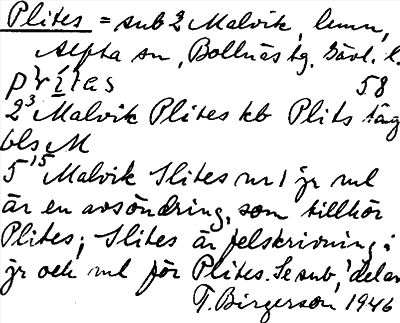 Plites = sub 2 Malvik, lemn,
Alfta sn, Bollnäs tg. Gävl. l.
58
2 3 Malvik Plites kb Plits täng
bls M
5 15 Malvik Slites nr 1 jr ml
är en avsöndring, som tillhör
Plites; Slites är felskrivning i
jr och ml för Plites. Se sub, 1 delar
T. Birgerson 1946